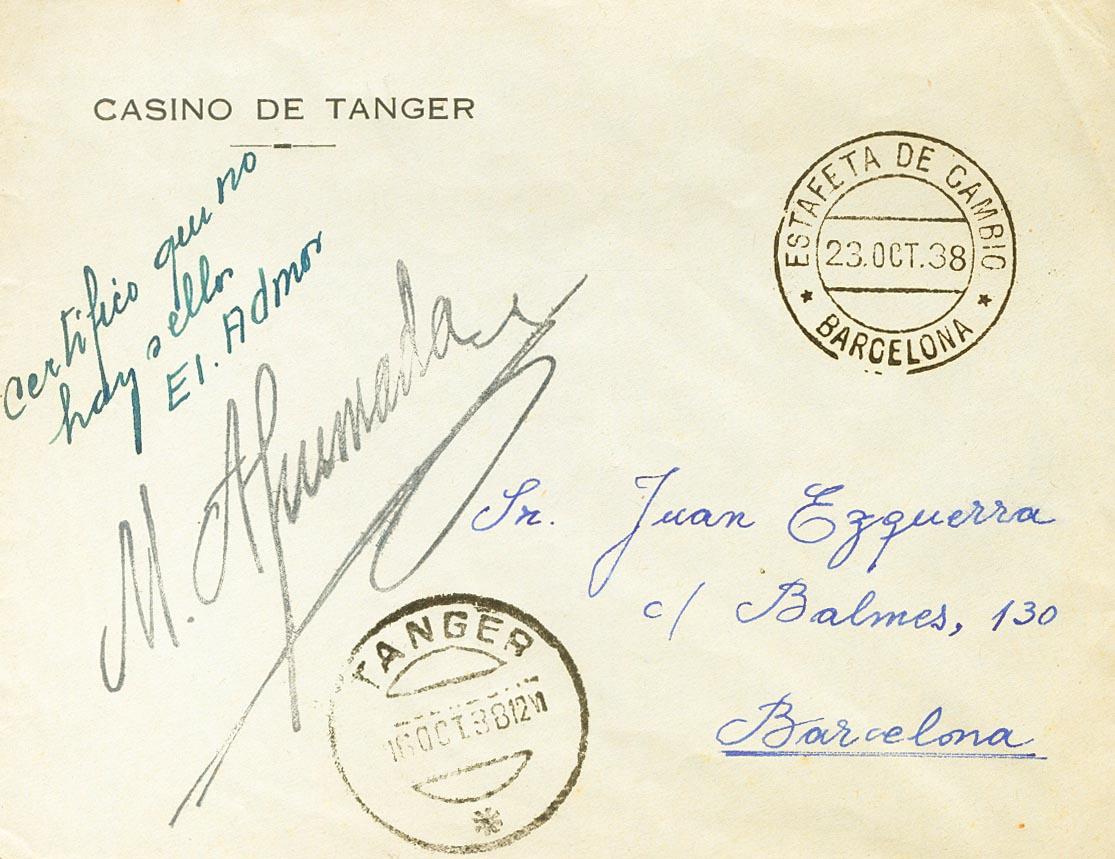 CASINO DE TANGER
certifico que no
hay sellos
El. Admor
M. Ahumada
ESTAFETA DE CAMBIO
23.OCT.38
BARCELONA
Sr. Juan Ezquerra
c/ Balmes, 130
Barcelona
TANGER
16OCT.38 12M